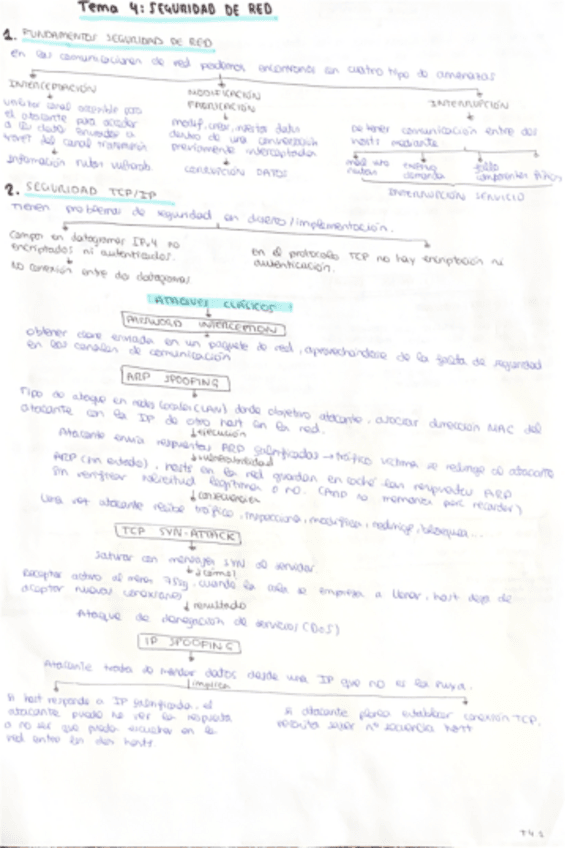 Tema 4: SEGURIDAD DE RED
1. FUNDAMENTOS SEGURIDAD DE RED
en las comunicaciones de red podemos encontrarnos con cuatro tipo de amenazas
INTERCEPTACIÓN
MODIFICACIÓN
FABRICACIÓN
INTERRUPCIÓN
utilizar canal accesible para
el atacante para acceder
a los datos enviados a
través del canal transmisión
Información nutos vulnerab
modif, crear, inserta datos
dentro de una conversación
previamente interceptada
CORRUPCIÓN DATOS
Detener comunicación entre dos
hosts mediante
mal uso
rutas
exceso
demanda
fallo
componentes físicos
INTERRUPCIÓN SERVICIO
2. SEGURIDAD TCP/IP
Tienen problemas de seguridad en diseño/implementación.
Campos en datagramas IPv4 no
encriptados ni autenticados.
No conexión entre dos datagramas
en el protocolo TCP no hay encriptación ni
autenticación.
ATAQUES CLÁSICOS
PASSWORD INTERCEPTION
obtener clave enviada en un paquete de red, aprovechándose de la falta de seguridad
en los canales de comunicación
ARP SPOOFING
Tipo de ataque en redes locales (LAN) donde objetivo atacante, asociar dirección MAC del
atacante con la IP de otro host en la red.
ejecución
Atacante envía respuestas ARP falsificadas → tráfico víctima se redirige al atacante
vulnerabilidad
ARP (sin estado), hosts en la red guardan en caché las respuestas ARP
sin verificar solicitud legítima o no. (ARP no memoria para recordar)
consecuencia
Una vez atacante recibe tráfico, inspecciona, modifica, redirige, bloquea...
TCP SYN-ATTACK
Saturar con mensajes SYN al servidor
¿cómo?
Receptor activo al menos 75sg, cuando la cola se empieza a llenar, host deja de
aceptar nuevas conexiones
resultado
Ataque de denegación de servicios (DoS)
IP SPOOFING
Atacante trata de mandar datos desde una IP que no es la suya.
implica
Si host responde a IP falsificada, el
atacante puede no ver la respuesta
a no ser que pueda escuchar en la
red entre los dos hosts.
si atacante planea establecer conexión TCP,
necesita saber nº secuencia host
T4 1